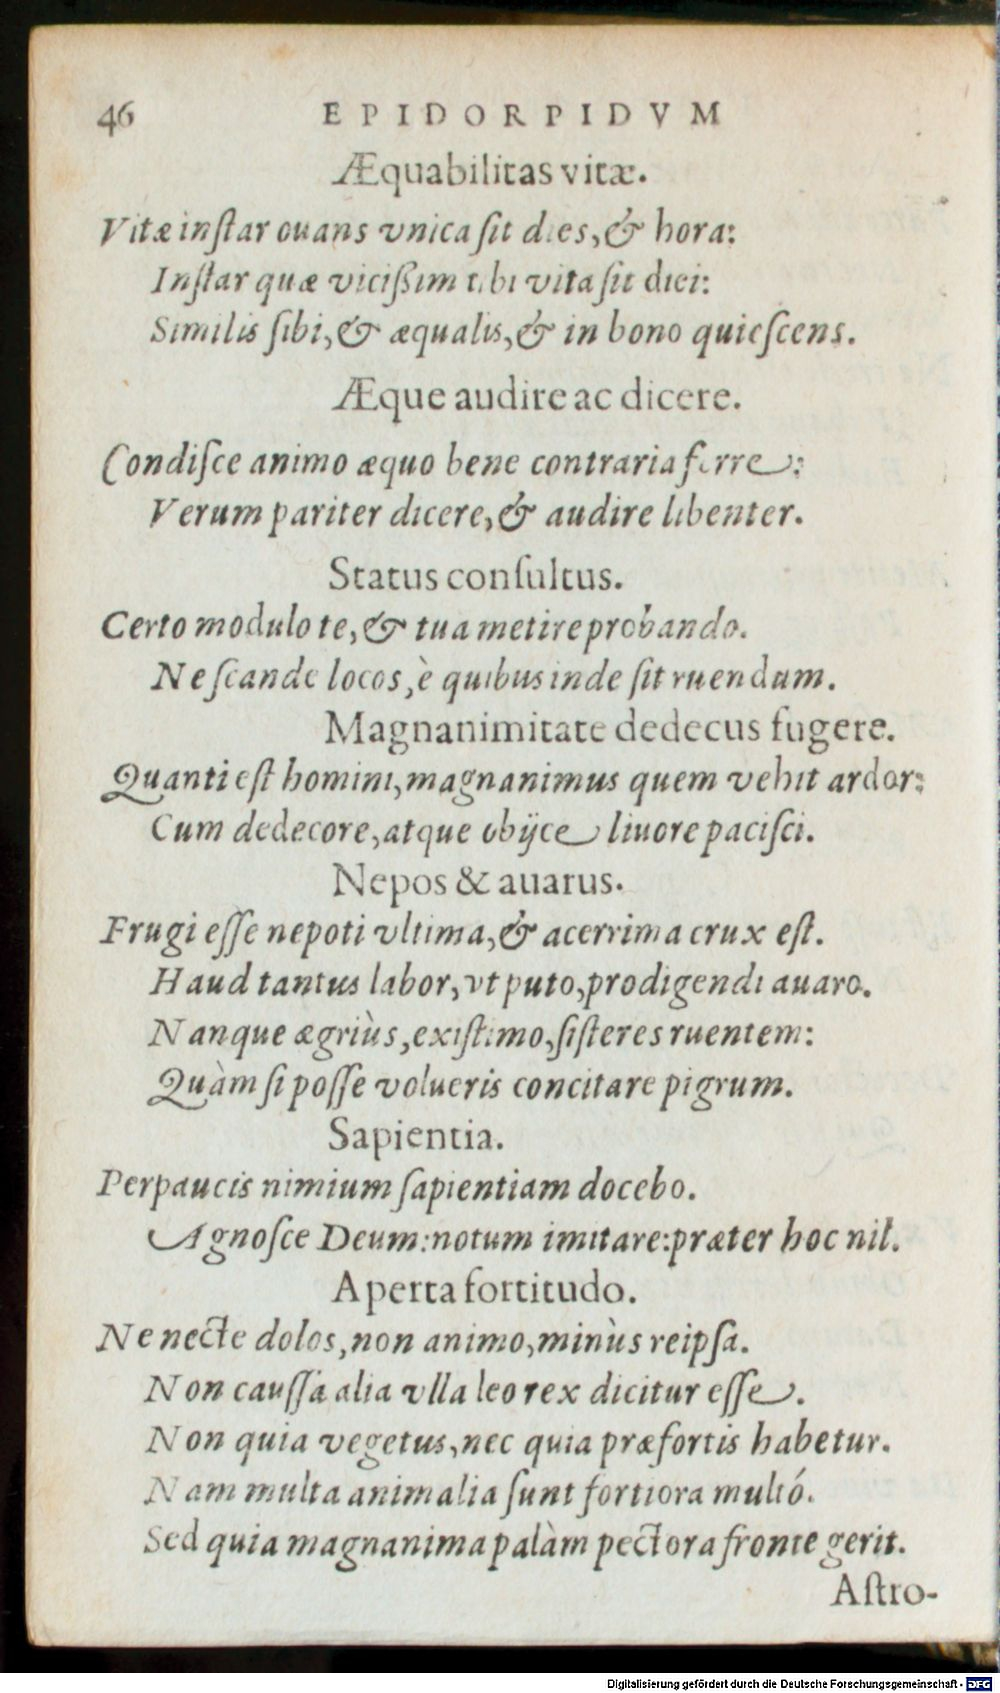 46 EPIDORPIDVM
Æquabilitas vitæ.
Vitæ inſtar ouans vnica ſit dies, & hora:
Inſtar quæ viciſsim tibi vita ſit diei:
Similis ſibi, & æqualis, & in bono quieſcens.
Æque audire ac dicere.
Condiſce animo æquo bene contraria ferre:
Verum pariter dicere, & audire libenter.
Status conſultus.
Certo modulo te, & tua metire probando.
Ne ſcande locos, è quibus inde ſit ruendum.
Magnanimitate dedecus fugere.
Quanti eſt homini, magnanimus quem vehit ardor:
Cum dedecore, atque obijce liuore paciſci.
Nepos & auarus.
Frugi eſſe nepoti vltima, & acerrima crux eſt.
Haud tantus labor, vt puto, prodigendi auaro.
Nanque ægriùs, exiſtimo, ſiſteres ruentem:
Quàm ſi poſſe volueris concitare pigrum.
Sapientia.
Perpaucis nimium ſapientiam docebo.
Agnoſce Deum: notum imitare: præter hoc nil.
Aperta fortitudo.
Ne necte dolos, non animo, minùs reipſa.
Non cauſſa alia vlla leo rex dicitur eſſe.
Non quia vegetus, nec quia præfortis habetur.
Nam multa animalia ſunt fortiora multó.
Sed quia magnanima palàm pectora fronte gerit.
Aſtro-
Digitalisierung gefördert durch die Deutsche Forschungsgemeinschaft - DFG